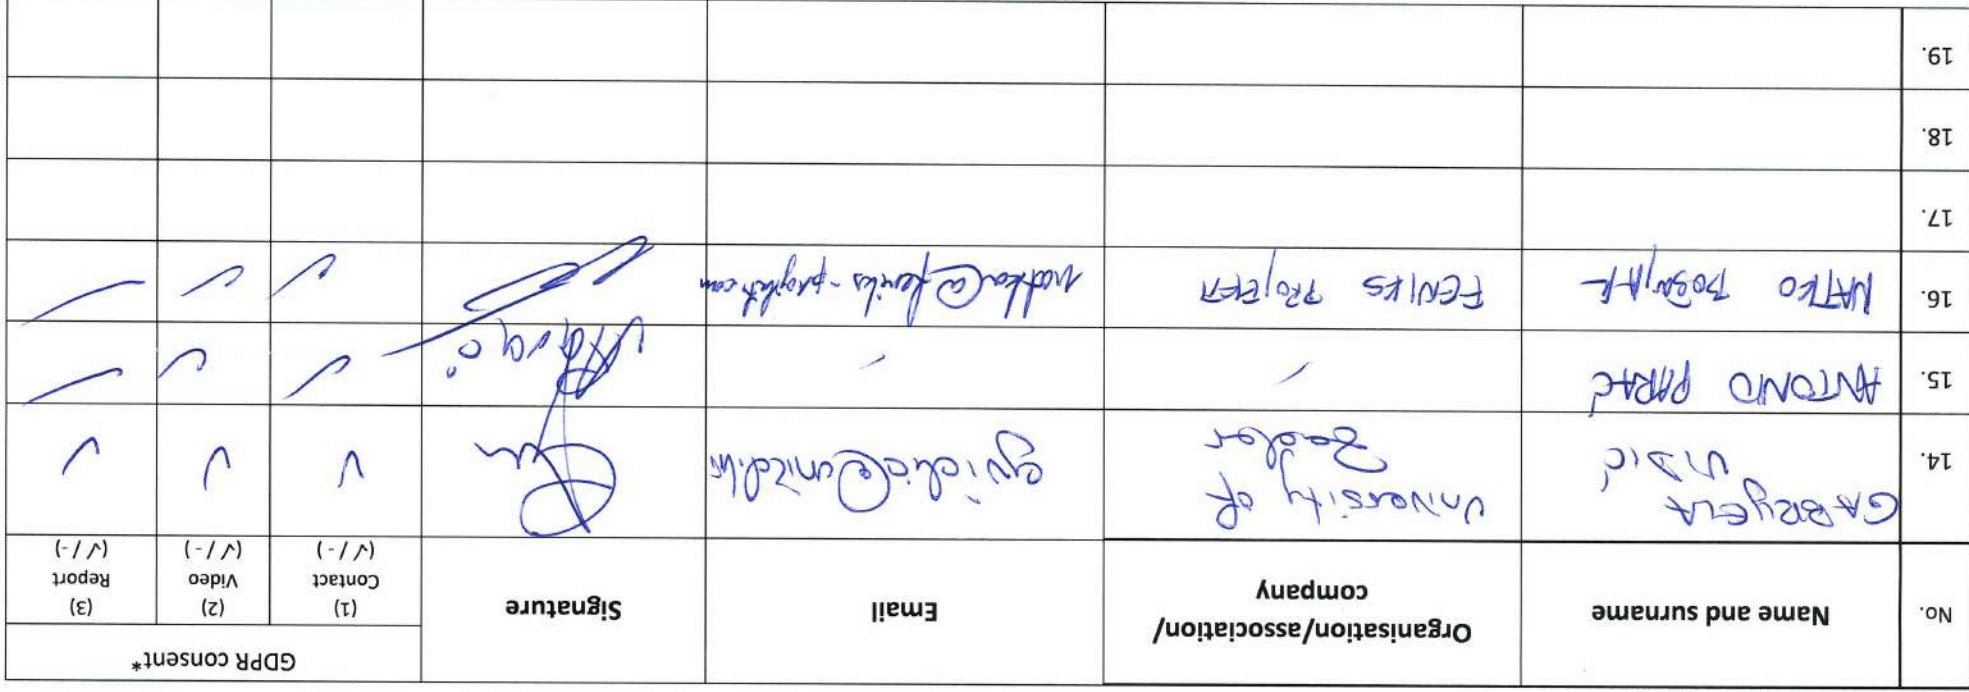 No.
Name and surname
Organisation/association/
company
Email
Signature
GDPR consent*
(1)
Contact
(√ / -)
(2)
Video
(√ / -)
(3)
Report
(√ / -)
14.
GABRIJELA
VIDIĆ
University of
Zadar
gvidic@unizd.hr
√
√
√
15.
ANTONIO PARAĆ
-
-
√
√
-
16.
MATKO BOŠNJAK
FENIKS PROJEKTI
√
√
-
17.
18.
19.